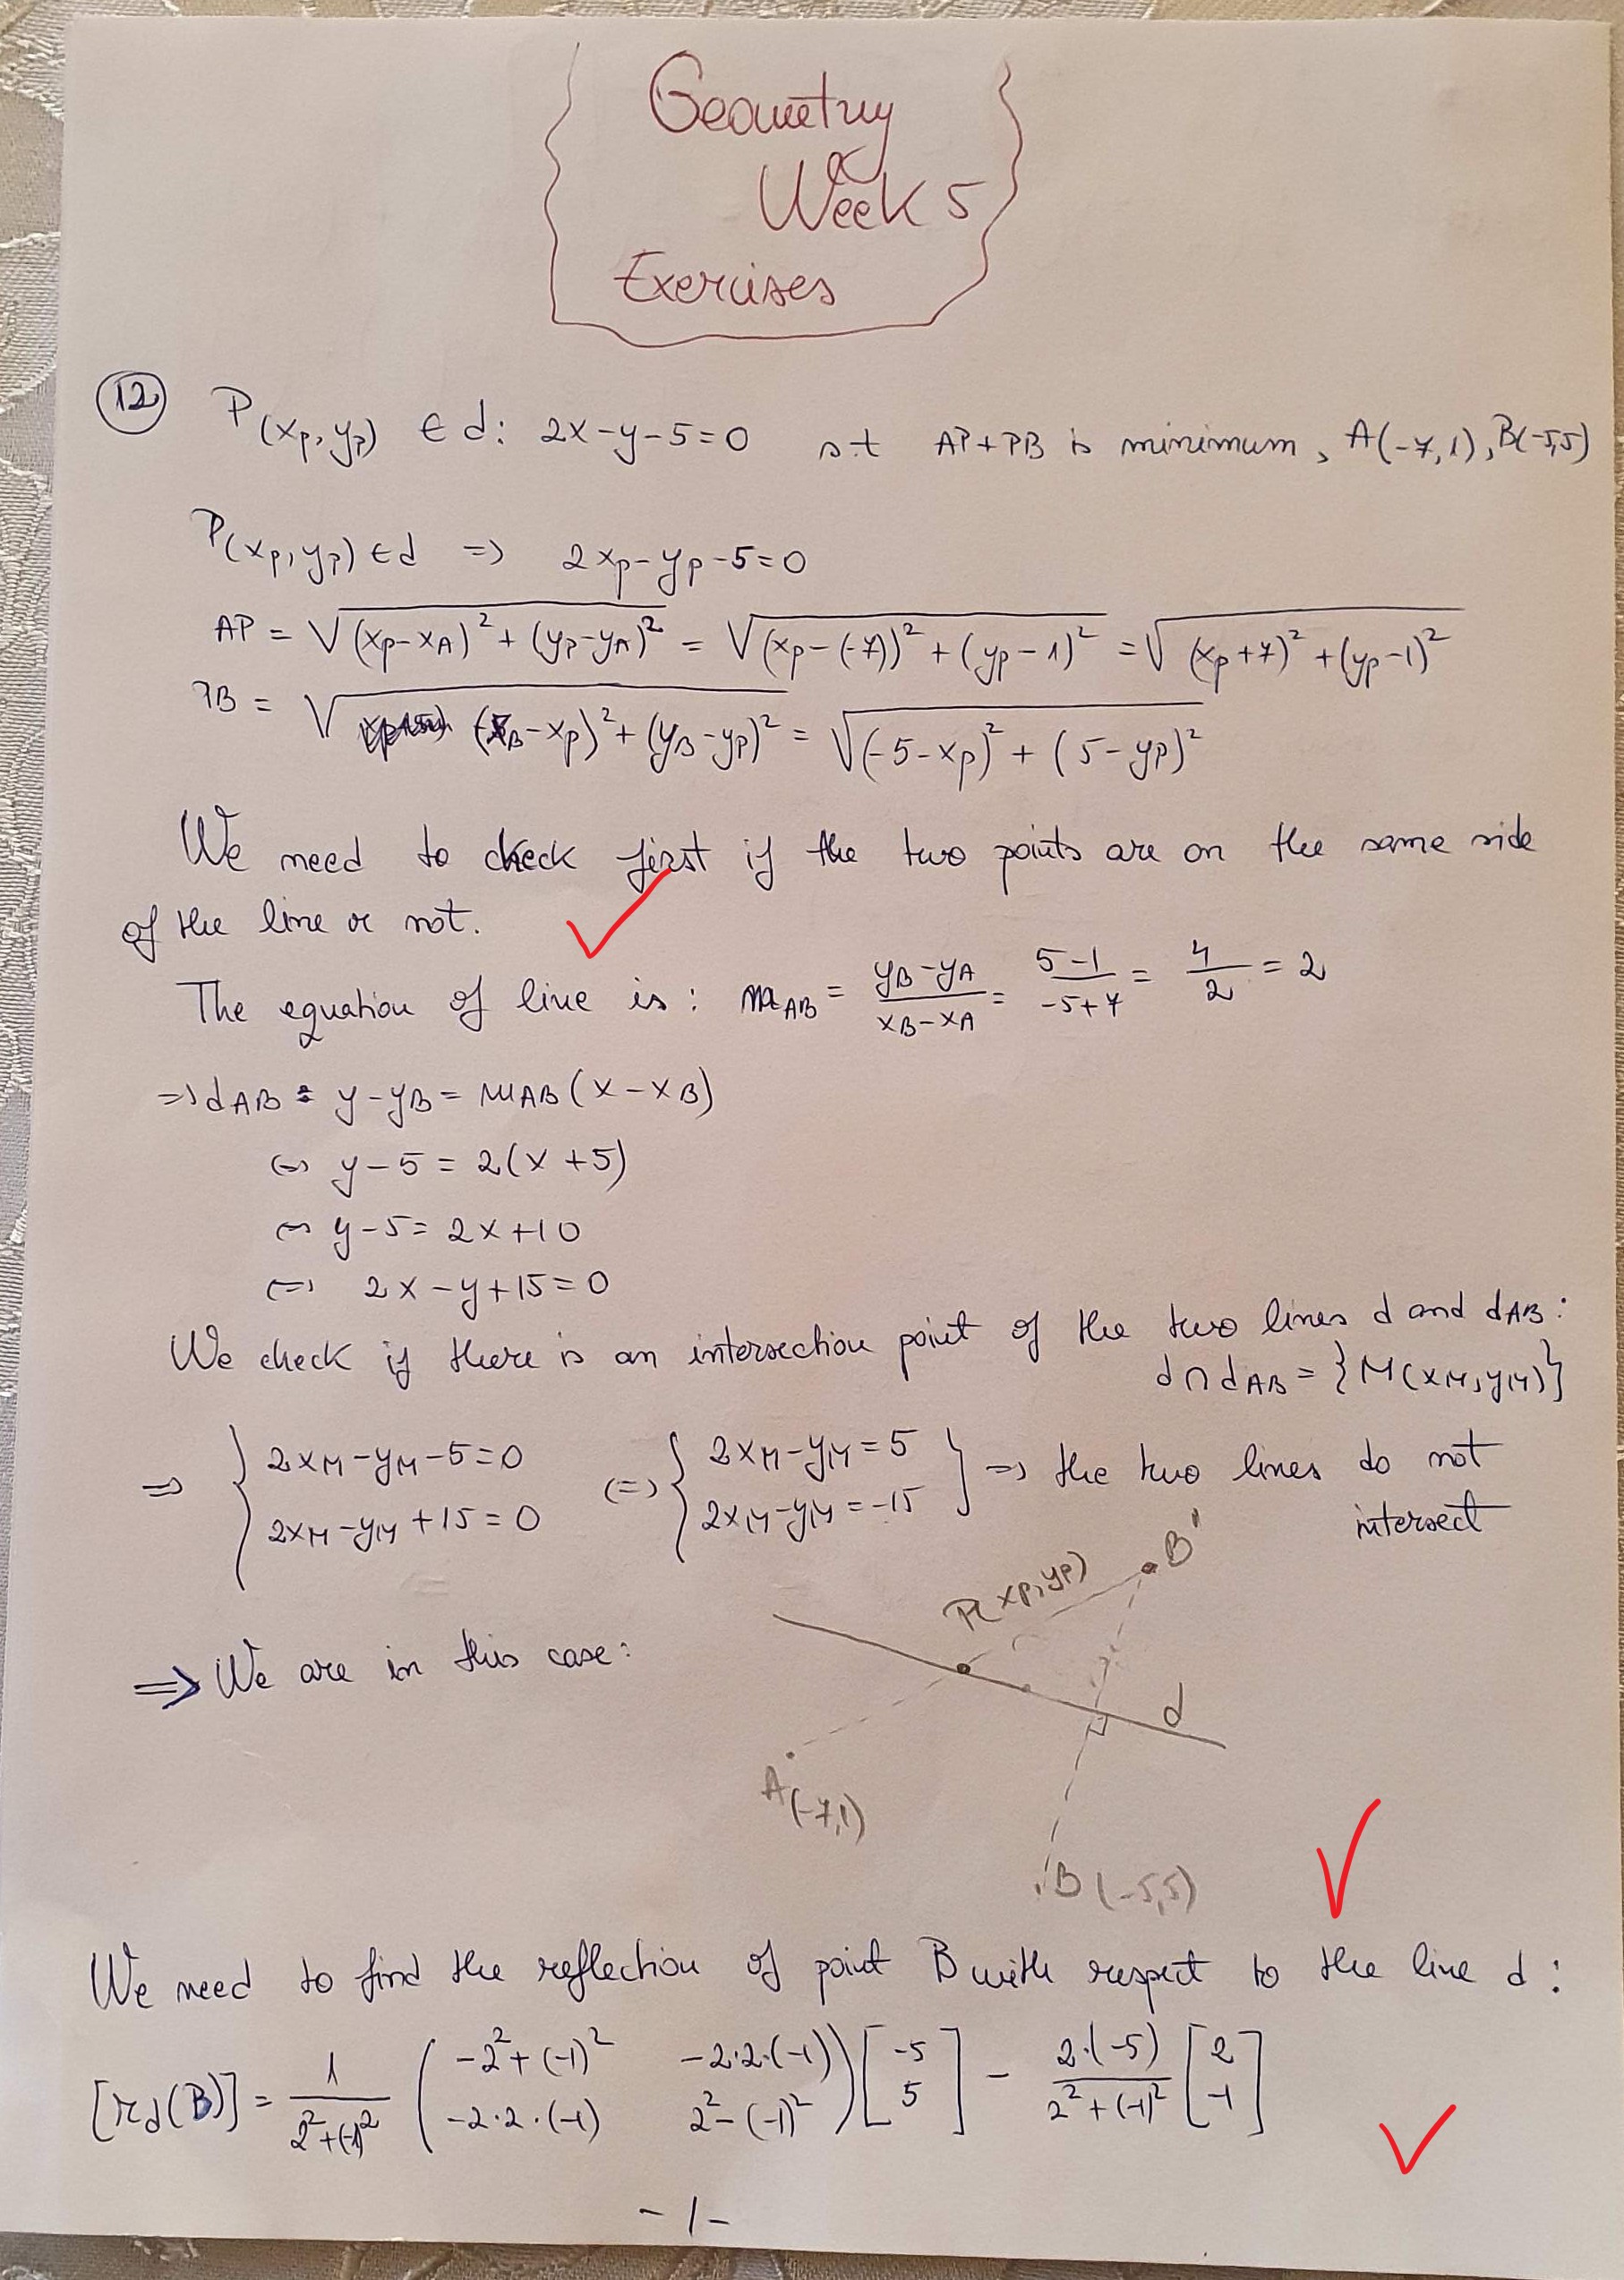 Geometry
Week 5
Exercises
12 P(xp, yp) ∈ d: 2x-y-5=0 s.t AP+PB is minimum, A(-7,1), B(-5,5)
P(xp, yp) ∈ d => 2xp-yp-5=0
AP = √(xp-xA)²+(yp-yA)² = √(xp-(-7))²+(yp-1)² = √(xp+7)²+(yp-1)²
PB = √(xB-xp)²+(yB-yp)² = √(-5-xp)²+(5-yp)²
We need to check first if the two points are on the same side
of the line or not.
The equation of line is: mAB = yB-yA/xB-xA = 5-1/-5+7 = 4/2 = 2
=> dAB: y-yB = mAB(x-xB)
<=> y-5 = 2(x+5)
<=> y-5 = 2x+10
<=> 2x-y+15=0
We check if there is an intersection point of the two lines d and dAB:
d∩dAB = {M(xM, yM)}
=> { 2xM-yM-5=0 <=> { 2xM-yM=5 } => the two lines do not
2xM-yM+15=0 2xM-yM=-15 intersect
B'
P(xp, yp)
=> We are in this case:
d
A(-7,1)
B(-5,5)
We need to find the reflection of point B with respect to the line d:
[rd(B)] = 1/2²+(-1)² ( -2²+(-1)² -2·2·(-1) ) [ -5 ] - 2·(-5)/2²+(-1)² [ 2 ]
( -2·2·(-1) 2²-(-1)² ) [ 5 ] [ -1 ]
-1-